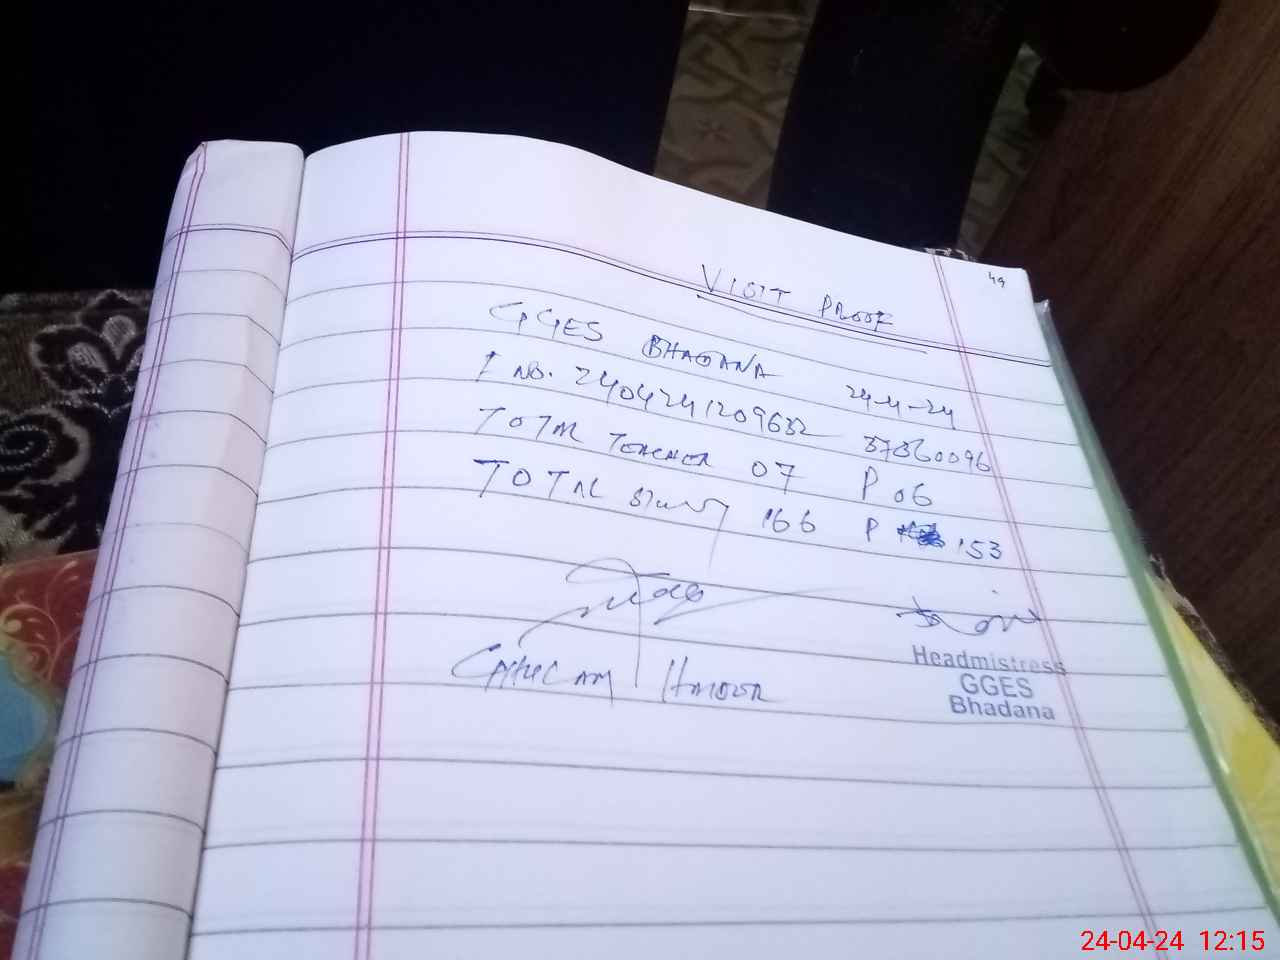 49
VISIT PROOF
GGES BHADANA 24-4-24
I NO. 2404241209632 37360096
TOTAL TEACHER 07 P 06
TOTAL 166 P 153
GHULAM HAIDER
Headmistress
GGES
Bhadana
24-04-24 12:15